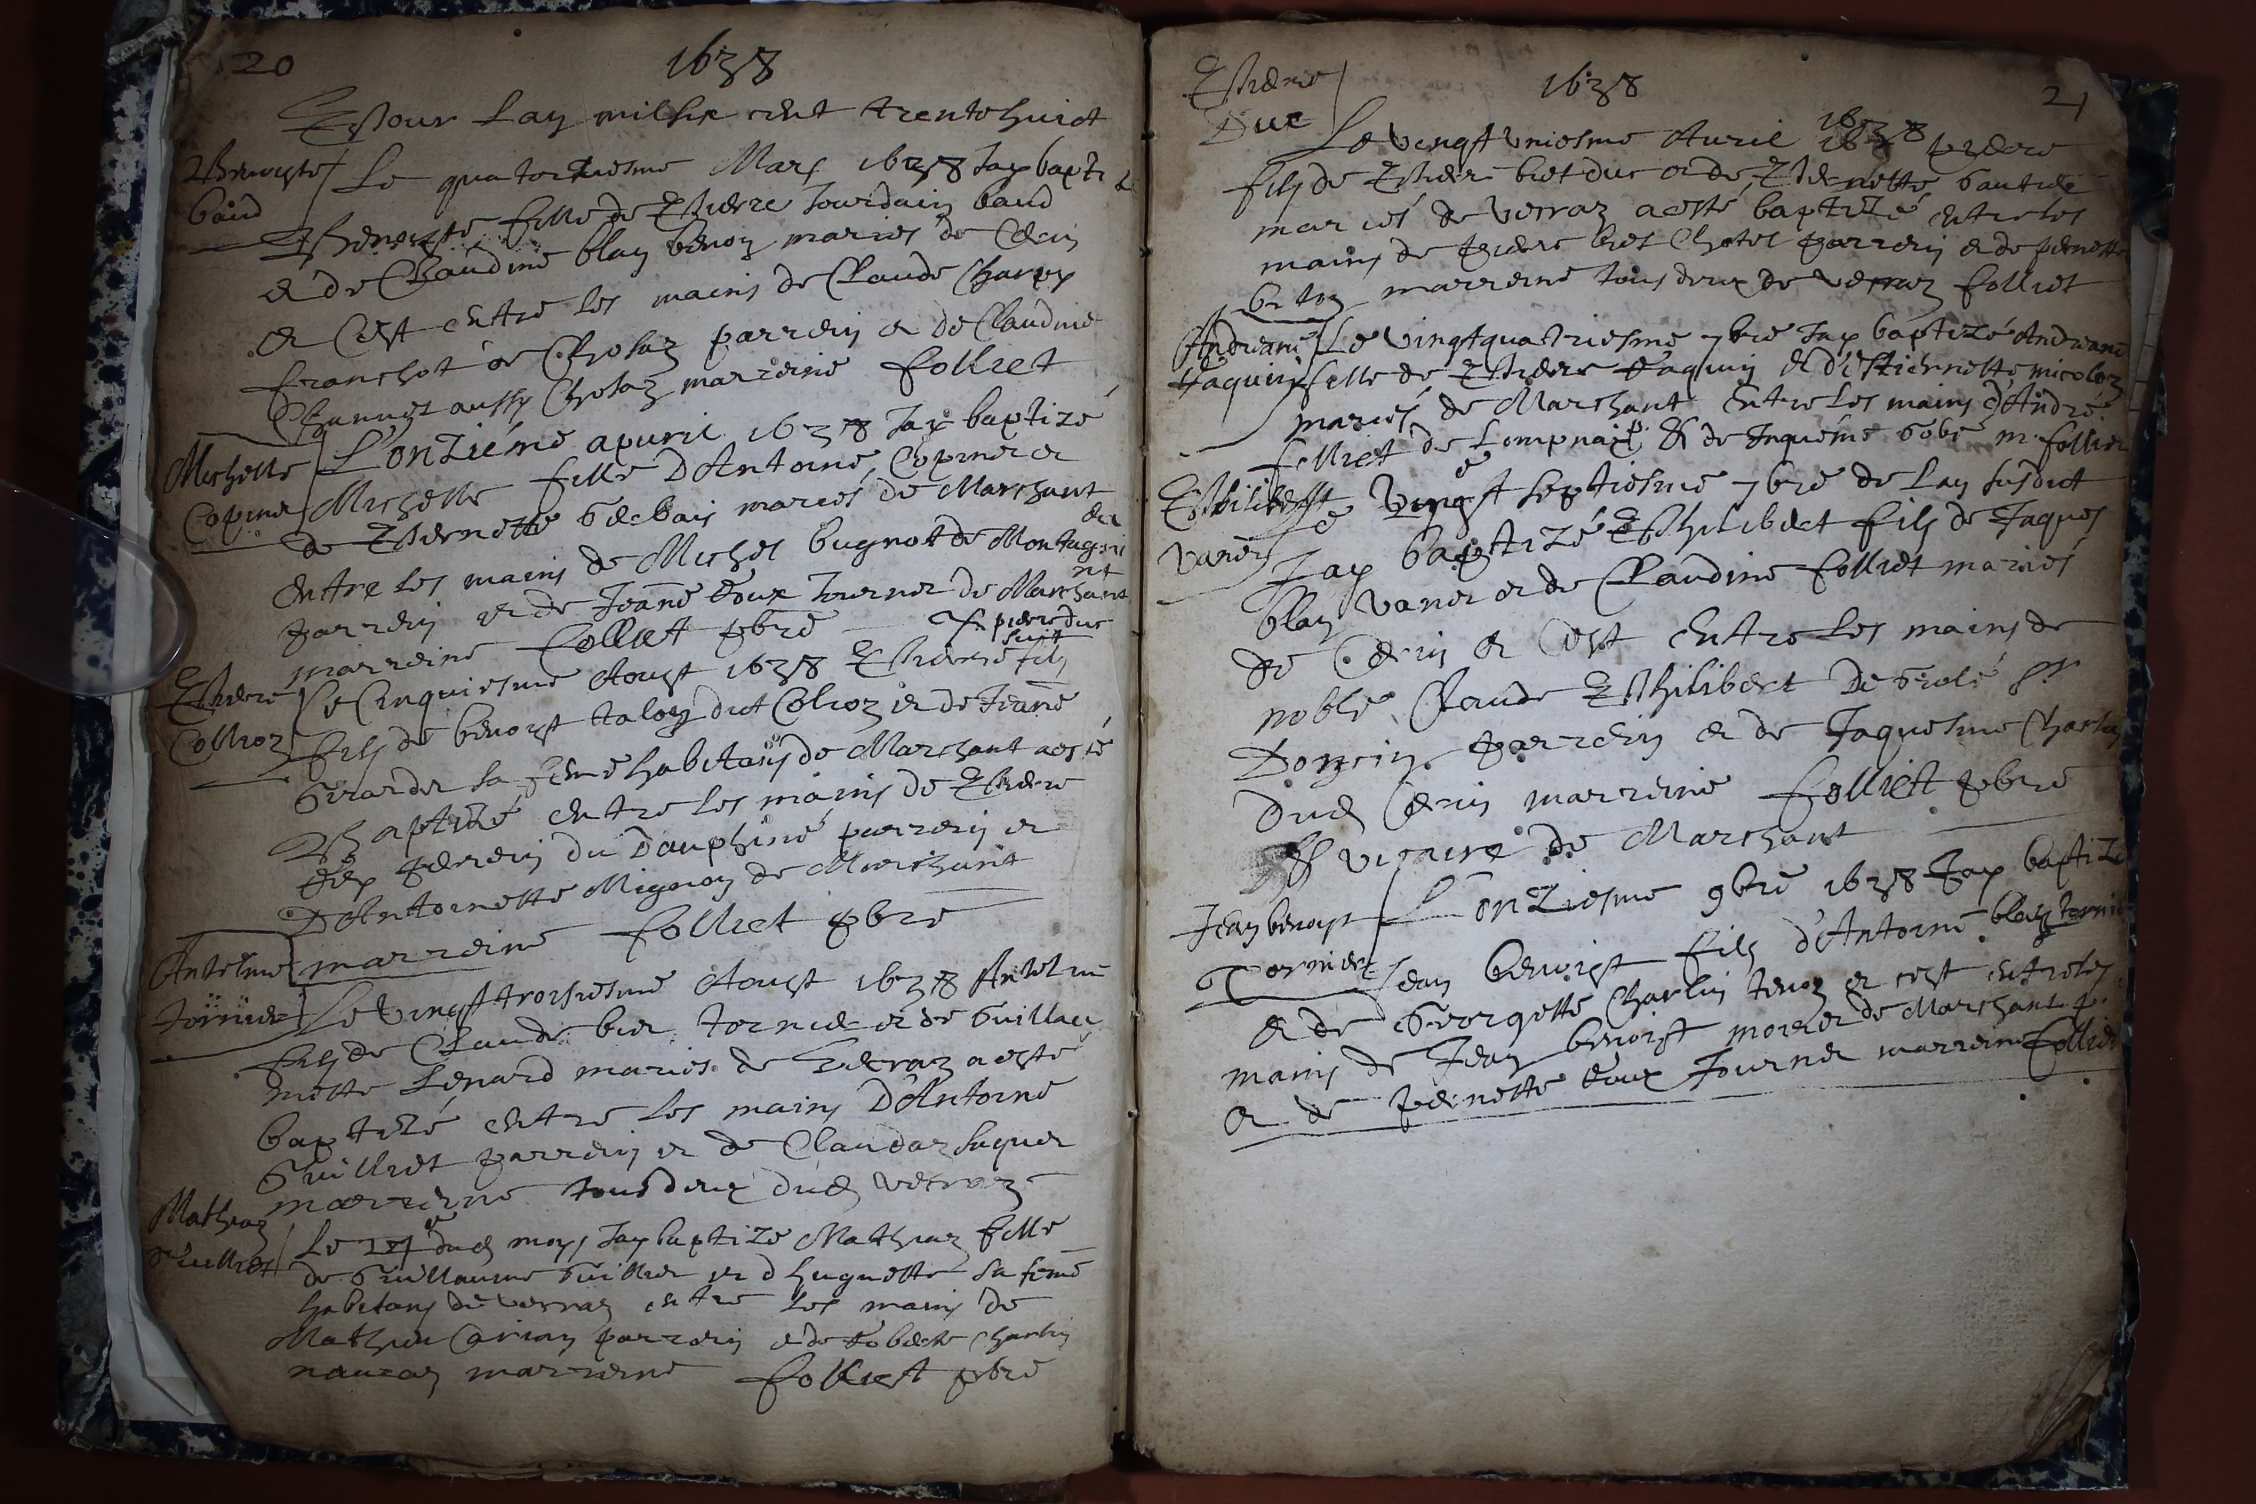 20
1638
Pour Lan mil six cent trentehuict
Benoyste
baud
Le quatorziesme Mars 1638 Jay baptizé
Benoyste fille de Pierre Jourdain baud
et de Claudine blay benoy mariés de Cerin
et Cest entre les mains de Claude Charpy
franchot de Cholaz parrein et de Claudine
aussy Cholaz marreine Folliet
Michelle
Copinet
L'onziéme apuril 1638 Jay baptizé
Michelle fille D'Antoine Copinet et
de Pernette Gerbais mariés de Marchant
entre les mains de Michel bugnot de Montagni
eu
parrein et de Jeane Roux Tourner de Marchant
marreine Folliet pbre
pierre duc
suit
Pierre
Collioz
Le Cinquiesme Aoust 1638 Pierre fils
fils de benoyst taloz dict Colioz et de Jeane
Girarder sa feme habitans de Marchant a esté
Baptizé entre les mains de Pierre
perrein du Dauphiné parrein et
D'Antoinette Mignon de Marchant
marreine Folliet pbre
Antelme
Tornier
Le Vingt troisiesme Aoust 1638 Antelme
fils de Claude biet tornier et de Guillau
mette Lenard mariés de Verraz a esté
baptizé entre les mains D'Antoine
Guilliet parrein et de Claudaz suquet
marreine tous deux dud Verraz
Mathiaz
Guilliet
Le 27e dud moys Jay baptizé Mathiaz fille
de Guillaume Guilliet et d huguette sa feme
habitans de verraz entre les mains de
Mathieu Carrian parrein et de Roberte Charlin
nauzaz marreine Folliet pbre
21
1638
Pierre
Duc
Le vingt uniesme Auril 1638 pierre
fils de Pierre biet duc et de Pernette Gautier
mariés de verraz a esté baptizé entre les
mains de pierre biet Chotel parrein et de pernette
marreine tous deux de verraz Folliet
Andreané
Jaquin
Le vingtquatriesme 7bre Jay baptizé Andreané
fille de Pierre Jaquin et d'Estiennette micoloz
mariés de Marchant entre les mains d'André
Folliet de Lompnaz et de Jaqueme Gobé m. Folliet
Philibert
Vanier
Le Vingt septiesme 7bre de Lan susdict
Jay baptizé Philibert fils de Jaques
blay Vanier et de Claudine Folliet mariés
de Cerin et Cest entre les mains de
noble Claude Philibert De Grolé Sr
Donzin parrein et de Jaquesme Charly
dud Cerin marreine Folliet pbre
vicaire de Marchant
Jean benoyst
Tornier
L'onziesme 9bre 1638 Jay baptizé
Jean benoist fils d'Antoine blay tornier
et de Georgette Charlin tenoz et cest entre les
mains de Jean benoist morier de Marchant p.
et de pernette Roux Tourner marreine Folliet